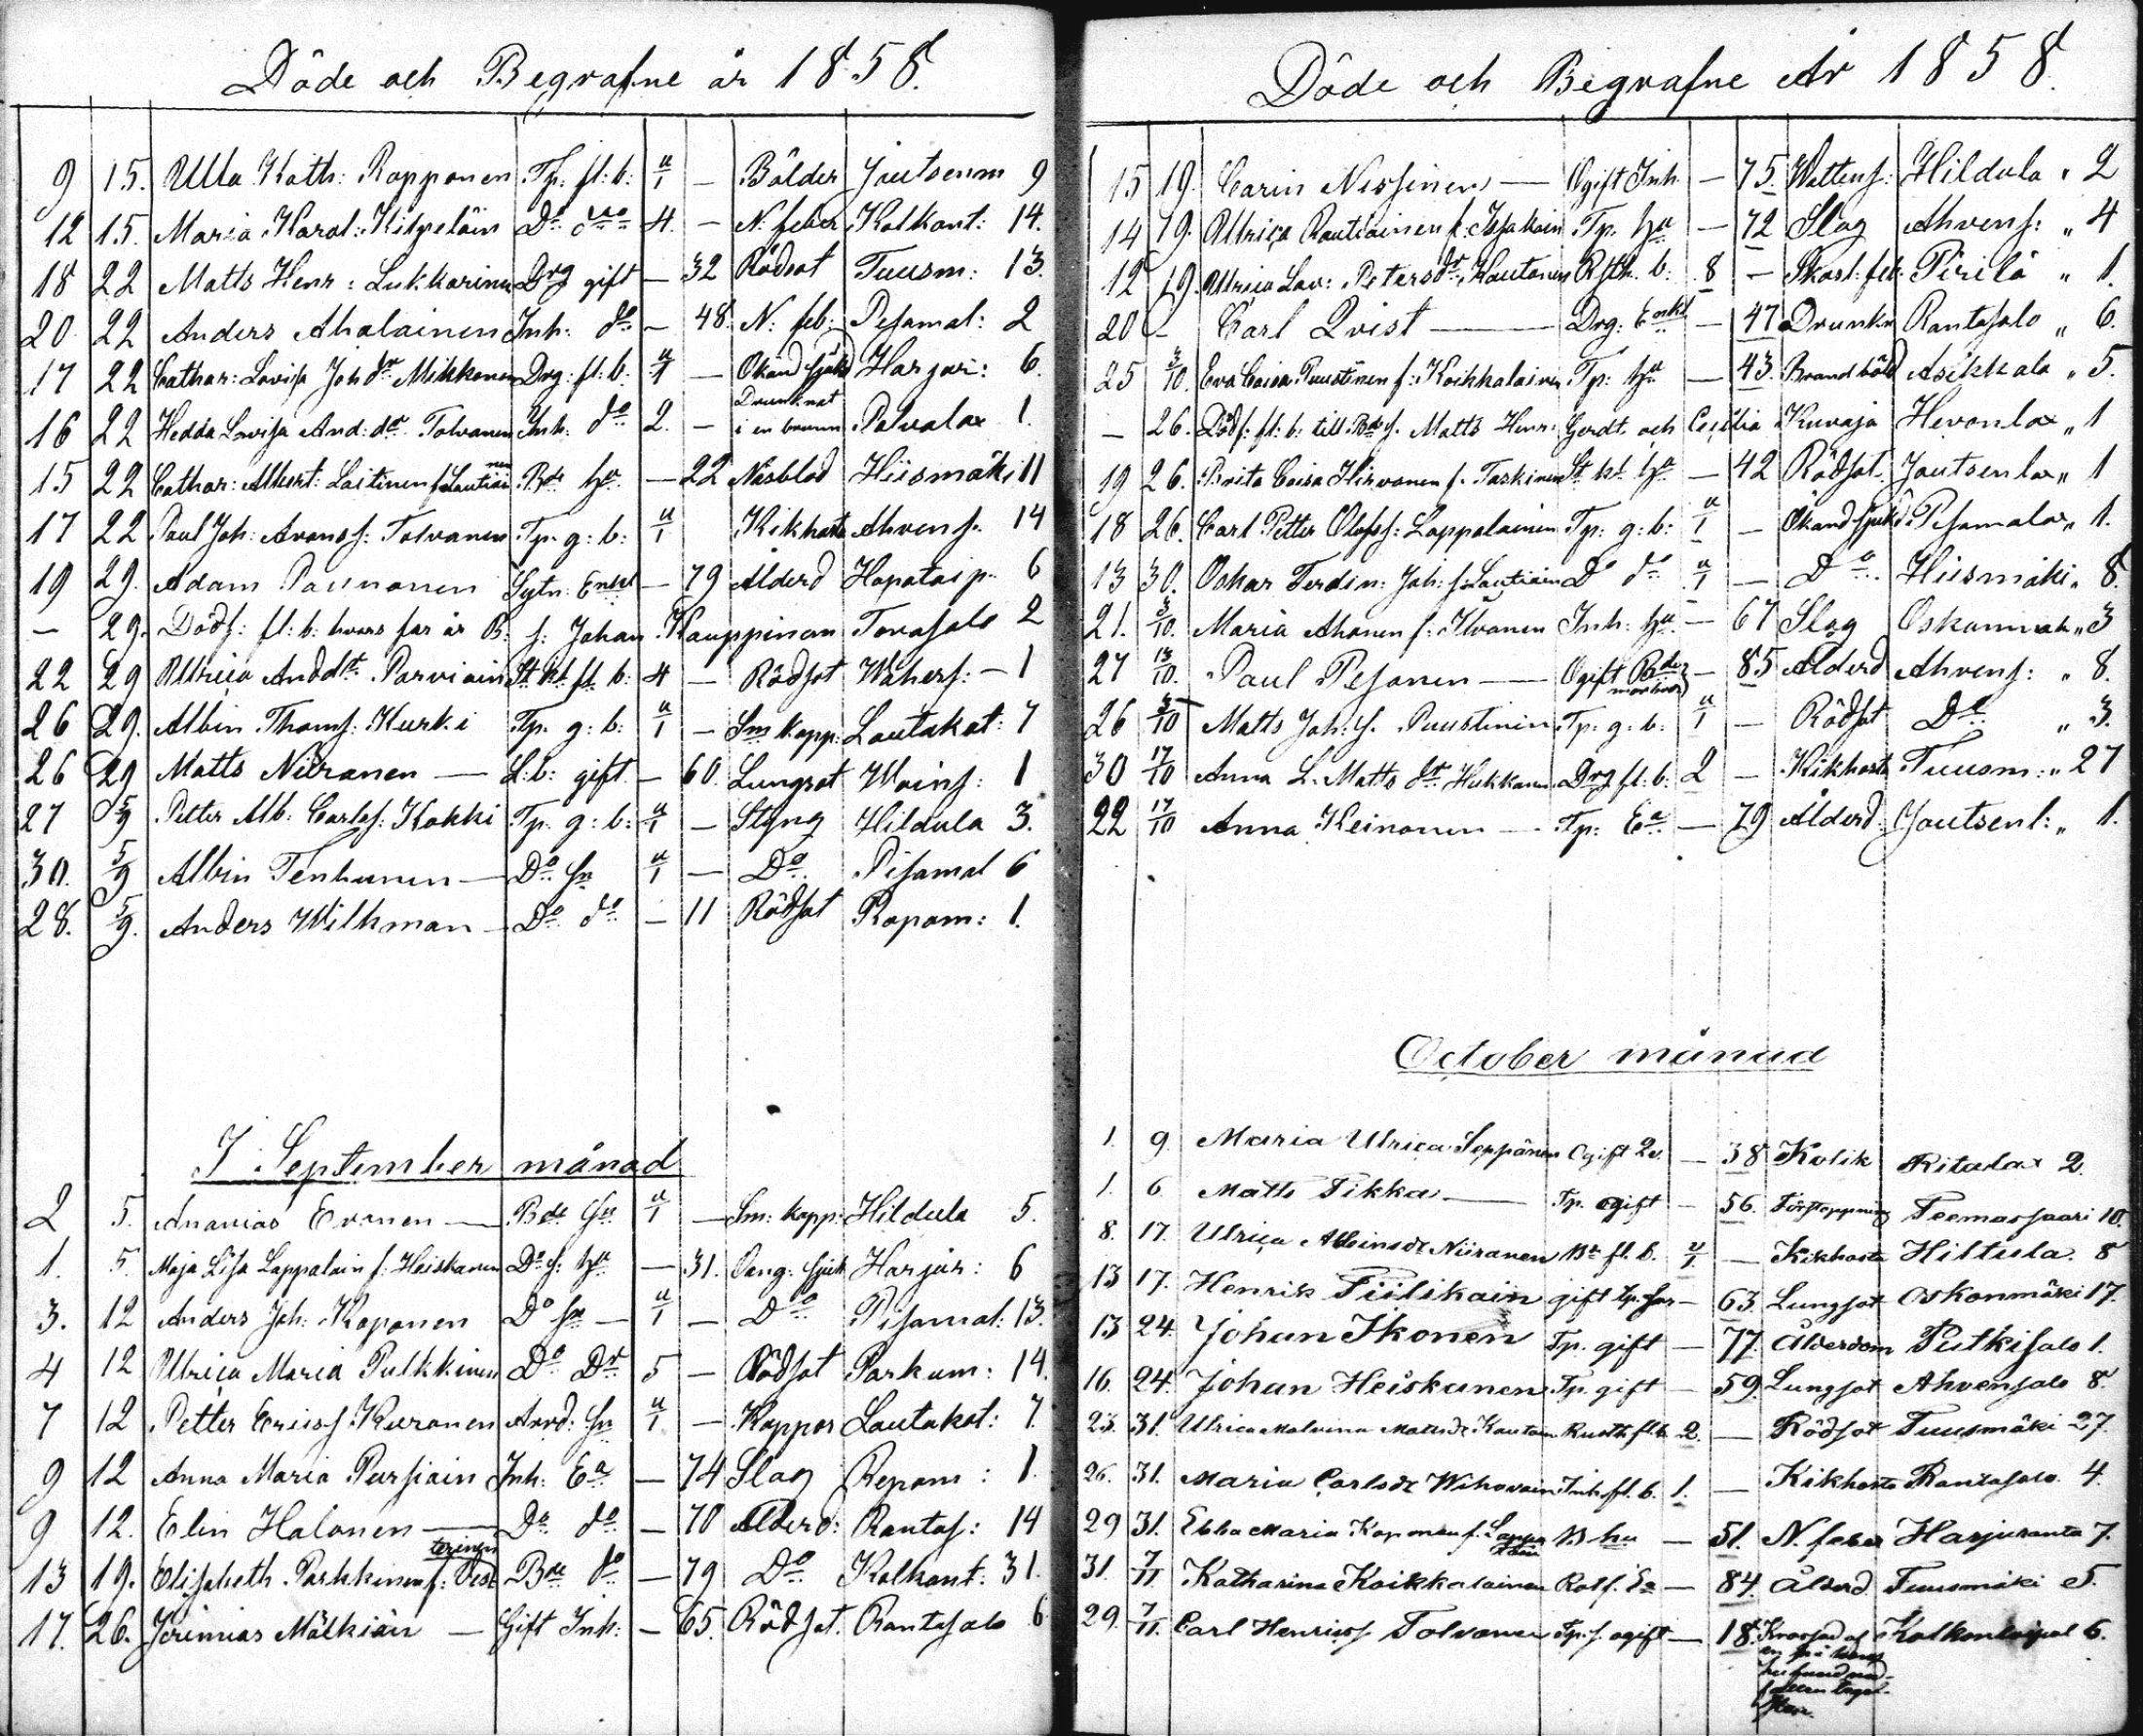 Döde och Begrafne år 1858.
9 15. Ulla Kath: Rapponen Tp. fl: b: u/1 – Bölder Joutsenm 9
12 15. Maria Karol: Kilpeläin Do dito 4. – N. feber Kolkont: 14.
18 22 Matts Henr: Lukkarinen Drg gift – 32 Rödsot Tuusm: 13.
20 22 Anders Aholainen Inh: do – 48. N: feb: Pesamal: 2
17 22 Cathar: Lovisa Joh dr Mikkonen Drg: fl: b: u/1 – Okänd sjukd Harjur: 6.
16 22 Hedda Lovisa And: dr Tolvanen Inh: do 2. – Drunknat i en brunn Polvalax 1.
15 22 Cathar: Albert: Laitinen f. Lautiainen Bde hu – 22 Näsblod Hiismäki 11
17 22 Paul Joh: Aronss: Tolvanen Tp. g: b: u/1 Kikhosta Ahvens. 14
19 29. Adam Paunonen Sytn: Enkl – 79 Ålderd Hapataip. 6
– 29. Dödf: fl: b: hvars far är B: s: Johan Kauppinen Tovasalo 2
22 29 Ullrica Anddr Parviain St. kl. fl. b: 4 – Rödsot Wähers: – 1
26 29. Albin Thoms: Kurki Tp. g: b: u/1 – Sm kopp: Lautakot: 7
26 29 Matts Niiranen — L: b: gift – 60. Lungsot Wains: 1
27 5/9 Petter Alb. Carls: Kokki Tp. g: b: u/1 – Styng Hildula 3.
30. 5/9 Albin Tenhunen — Do Sn u/1 – Do Pesamal 6
28. 5/9. Anders Wilhman – Do do – 11 Rödsot Ropam: 1.
I September månad
2 5. Ananias Evonen — Bde Sn u/1 – Sm: kopp: Hildula 5.
1. 5. Maja Lisa Lappalain f: Heiskanen Do s: hu – 31. Oang: sjuk Harjur: 6
3. 12 Anders Joh: Koponen Do Sn – u/1 – Do Pesamal: 13.
4 12 Ullrica Maria Pulkkinen Do Dr 5 – Rödsot Parkum: 14.
7 12 Petter Ericss Kuronen Arrd: Sn u/1 – Koppor Lautakot: 7.
9 12 Anna Maria Pursiain Inh: Ea – 74 Slag Repom: 1.
9 12. Elin Halonen — Do do – 70 Ålderd: Rantas: 14
13 19. Elisabeth Parkkinen f: Vesterinen Bde do – 79 Do Kolkont: 31.
17. 26. Jerimias Mälkiäin — Gift Inh: – 65. Rödsot. Rantasalo 6
Döde och Begrafne År 1858.
15 19. Carin Nissinen — Ogift Inh. – 75 Wattens: Hildula „ 2
14 19. Ullrica Rautiainen f: Issakain Tp. hu – 72 Slag Ahvens: „ 4
12 19. Ullrica Lov: Petersdr Kautonen Rsth: b: 8 – Skarl: feb: Pirilä „ 1.
20 – Carl Qvist — Drg: Enkl – 47 Drunkn Rantasalo „ 6.
25 3/10. Eva Caisa Puustinen f: Koikkalainen Tp: hu – 43. Brandböld Asikkala „ 5.
– 26. Dödf: fl: b: till Bde s. Matts Henr: Gerdt och Cecilia Kuvaja Hevonlax „ 1
19 26. Brita Caisa Hirvonen f. Taskinen St. kl. hu – 42 Rödsot. Joutsenlax „ 1
18 26. Carl Petter Olofss: Lappalainen Tp: g: b: u/1 – Okänd sjukd Pesamalax „ 1.
13 30. Oskar Ferdin: Joh: s. Lautiain Do do u/1 – Do Hiismäki „ 8.
21. 3/10. Maria Ahonen f: Ilvonen Inh: hu – 67 Slag Oskanmäk „ 3
27 13/10. Paul Pesonen — Ogift Bdes morbror – 85 Ålderd Ahvens: „ 8.
26 3/10 Matts Joh: s. Puustinen Tp: g: b: u/1 – Rödsot Do „ 3.
30 17/10 Anna L. Matts dr Hukkanen Drg fl: b: 2 – Kikhosta Tuusm: „ 27
22 17/10 Anna Keinonen — Tp: Ea – 79 Ålderd: Joutsenl: „ 1.
October månad
1. 9. Maria Ulrica Seppänen Ogift – 38 Kolik Ritulax 2.
1. 6. Matts Tikka — Tp. ogift – 56. Förstoppning Teemassaari 10.
8. 17. Ulrica Albinsdr Niiranen Br fl. b. u/1. – Kikhosta Hiltula 8
13 17. Henrik Piilikain gift tp. – 63. Lungsot Oskonmäki 17.
13 24. Johan Ikonen Tp. gift – 77. Ålderdom Putkisalo 1.
16. 24. Johan Heiskanen Tp. gift – 59. Lungsot Ahvensalo 8.
23. 31. Ulrica Malvina Mattsdr Kautoin Rusth. fl. b. 2. – Rödsot Tuusmäki 27.
26. 31. Maria Carlsdr Wihovain Inh. fl. b. 1. – Kikhosta Rantasalo 4.
29 31. Ebba Maria Koponen f. Lappalain B. hu – 51. N. feber Harjuranta 7.
31. 7/11. Katharina Koikkalainen Rotf. Ea – 84. Ålderd. Tuusmäki 5.
29. 7/11. Carl Henricss Tolvanen Tp. s. ogift – 18. Krossad af Kolkontaipal 6.
en på hans
hufvud ned-
fallen tegel-